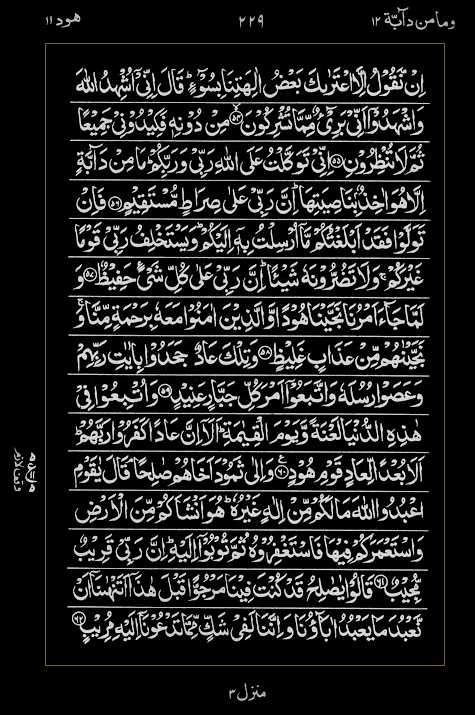 ومامن دآبّة ١٢ ٢٢٩ هود ١١
اِنْ نَّقُوْلُ اِلَّا اعْتَرٰىكَ بَعْضُ اٰلِهَتِنَا بِسُوْٓءٍ ؕ قَالَ اِنِّیْۤ اُشْهِدُ اللّٰهَ
وَاشْهَدُوْۤا اَنِّیْ بَرِیْٓءٌ مِّمَّا تُشْرِكُوْنَ ۙ۵۴ مِنْ دُوْنِهٖ فَكِیْدُوْنِیْ جَمِیْعًا
ثُمَّ لَا تُنْظِرُوْنِ ۵۵ اِنِّیْ تَوَكَّلْتُ عَلَی اللّٰهِ رَبِّیْ وَرَبِّكُمْ ؕ مَا مِنْ دَآبَّةٍ
اِلَّا هُوَ اٰخِذٌۢ بِنَاصِیَتِهَا ؕ اِنَّ رَبِّیْ عَلٰی صِرَاطٍ مُّسْتَقِیْمٍ ۵۶ فَاِنْ
تَوَلَّوْا فَقَدْ اَبْلَغْتُكُمْ مَّاۤ اُرْسِلْتُ بِهٖۤ اِلَیْكُمْ ؕ وَیَسْتَخْلِفُ رَبِّیْ قَوْمًا
غَیْرَكُمْ ۚ وَلَا تَضُرُّوْنَهٗ شَیْـًٔا ؕ اِنَّ رَبِّیْ عَلٰی كُلِّ شَیْءٍ حَفِیْظٌ ۵۷ وَ
لَمَّا جَآءَ اَمْرُنَا نَجَّیْنَا هُوْدًا وَّالَّذِیْنَ اٰمَنُوْا مَعَهٗ بِرَحْمَةٍ مِّنَّا ۚ وَ
نَجَّیْنٰهُمْ مِّنْ عَذَابٍ غَلِیْظٍ ۵۸ وَتِلْكَ عَادٌ ۙ جَحَدُوْا بِاٰیٰتِ رَبِّهِمْ
وَعَصَوْا رُسُلَهٗ وَاتَّبَعُوْۤا اَمْرَ كُلِّ جَبَّارٍ عَنِیْدٍ ۵۹ وَاُتْبِعُوْا فِیْ
هٰذِهِ الدُّنْیَا لَعْنَةً وَّیَوْمَ الْقِیٰمَةِ ؕ اَلَاۤ اِنَّ عَادًا كَفَرُوْا رَبَّهُمْ ؕ
اَلَا بُعْدًا لِّعَادٍ قَوْمِ هُوْدٍ ۶۰ وَاِلٰی ثَمُوْدَ اَخَاهُمْ صٰلِحًا ۘ قَالَ یٰقَوْمِ
اعْبُدُوا اللّٰهَ مَا لَكُمْ مِّنْ اِلٰهٍ غَیْرُهٗ ؕ هُوَ اَنْشَاَكُمْ مِّنَ الْاَرْضِ
وَاسْتَعْمَرَكُمْ فِیْهَا فَاسْتَغْفِرُوْهُ ثُمَّ تُوْبُوْۤا اِلَیْهِ ؕ اِنَّ رَبِّیْ قَرِیْبٌ
مُّجِیْبٌ ۶۱ قَالُوْا یٰصٰلِحُ قَدْ كُنْتَ فِیْنَا مَرْجُوًّا قَبْلَ هٰذَاۤ اَتَنْهٰىنَاۤ اَنْ
نَّعْبُدَ مَا یَعْبُدُ اٰبَآؤُنَا وَاِنَّنَا لَفِیْ شَكٍّ مِّمَّا تَدْعُوْنَاۤ اِلَیْهِ مُرِیْبٍ ۶۲
منزل ٣